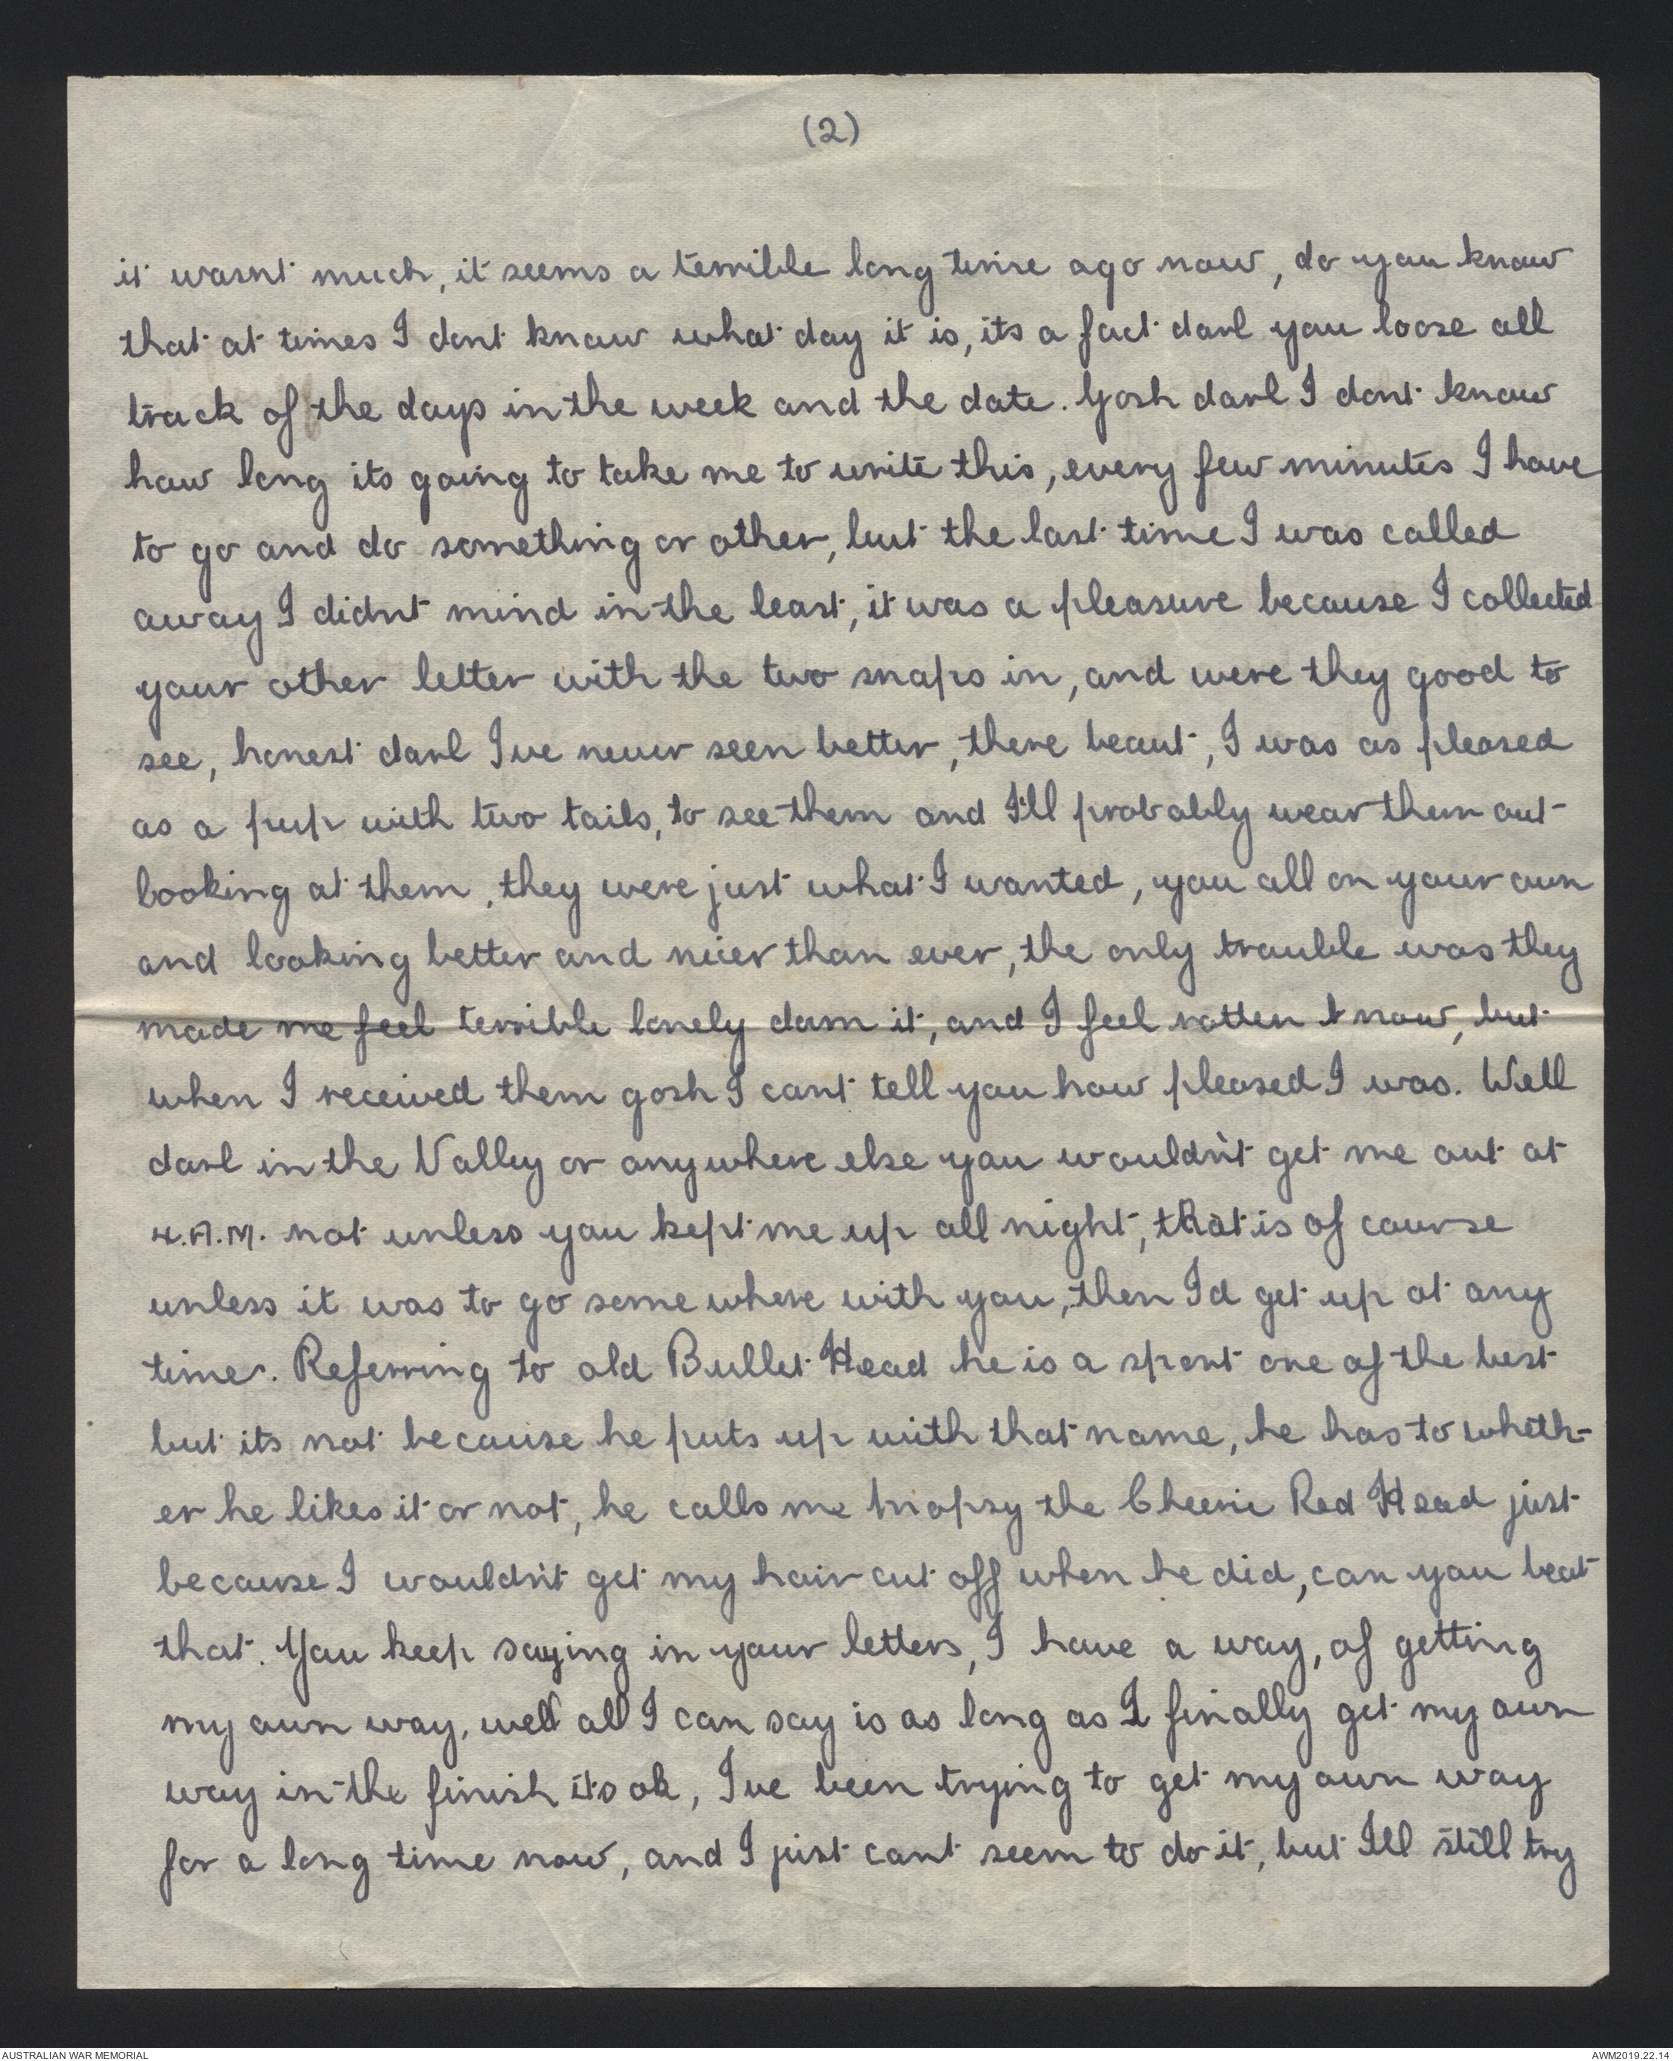 (2)
it wasnt much, it seems a terrible long time ago now, do you know
that at times I dont know what day it is, its a fact darl you loose all
track of the days in the week and the date. Gosh darl I dont know
how long its going to take me to write this, every few minutes I have
to go and do something or other, but the last time I was called
away I didnt mind in the least, it was a pleasure because I collected
your other letter with the two snaps in, and were they good to
see, honest darl Ive never seen better, there beaut, I was as pleased
as a pup with two tails, to see them and I'll probably wear them out
looking at them, they were just what I wanted, you all on your own
and looking better and nicer than ever, the only trouble was they
made me feel terrible lonely dam it, and I feel rotten now, but
when I received them gosh I cant tell you how pleased I was. Well
darl in the Valley or anywhere else you wouldn't get me out at
4.A.M. not unless you kept me up all night, that is of course
unless it was to go somewhere with you, then I'd get up at any
time. Referring to old Bullet Head he is a sport one of the best
but its not because he puts up with that name, he has to wheth-
er he likes it or not, he calls me mopsy the Cheerie Red Head just
because I wouldn't get my hair cut off when he did, can you beat
that. You keep saying in your letters, I have a way, of getting
my own way, well all I can say is as long as I finally get my own
way in the finish its ok, Ive been trying to get my own way
for a long time now, and I just cant seem to do it, but Ill still try
AUSTRALIAN WAR MEMORIAL
AWM2019.22.14